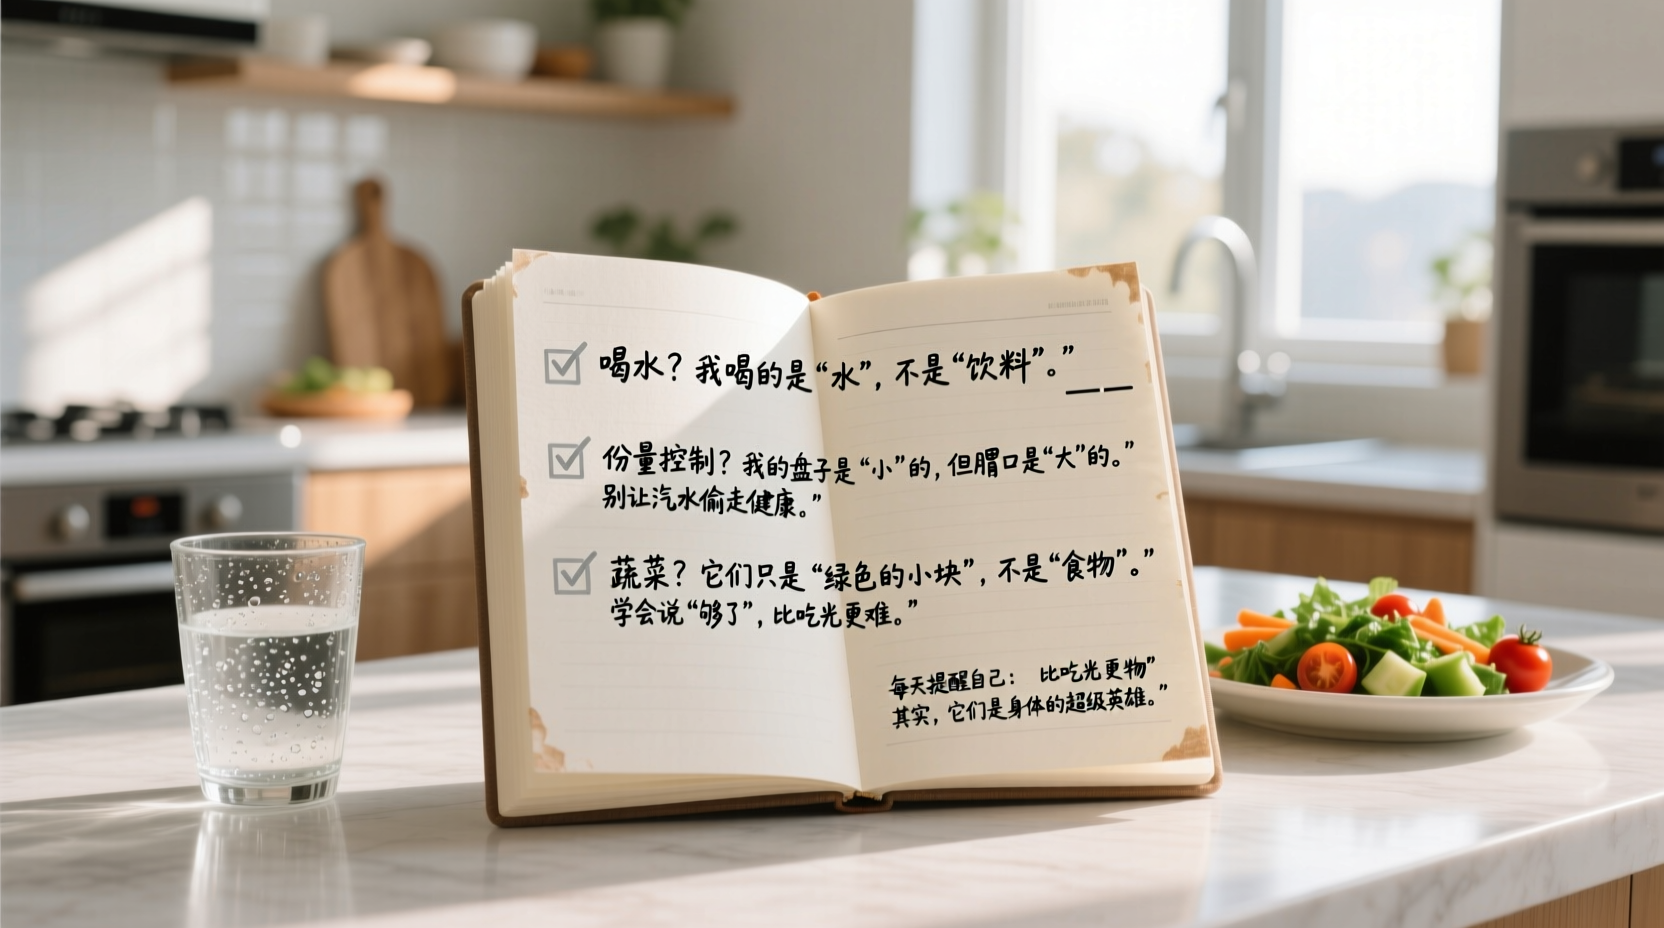 喝水？我喝的是“水”，不是“饮料”。”
份量控制？我的盘子是“小”的，但胃口是“大”的。”
别让汽水偷走健康。”
蔬菜？它们只是“绿色的小块”，不是“食物”。”
学会说“够了”，比吃光更难。”
每天提醒自己： 比吃光更物”
其实，它们是身体的超级英雄。”